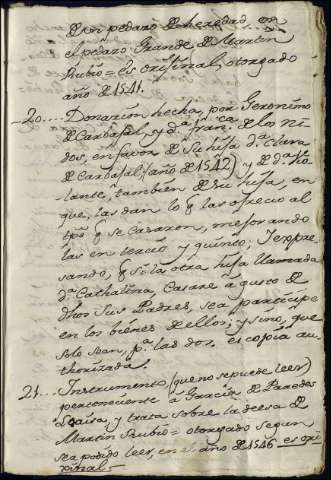 de un pedazo de heredad en
el pedazo Grande de Martin
Rubio = es original, otorgado
año de 1541.
20.... Donacion hecha, por Geronimo
de Carbajal, y d.ª fran.ca de los Ni-
dos, en favor de su hija d.ª Clara
de Carbajal (año de 1542) y d.ª Vio-
lante, tambien de su hija, en
que, las dan lo q.e ofrecio al
tpõ q.e se casaron, mejorando
las en tercio y quinto; Y expre-
sando, q.e si la otra hija llamada
d.ª Cathalina, Casare a gusto de
dhos sus Padres, sea participe
en los bienes de ellos; y sino, que
solo sean, p.ª las dos. es copia au-
thorizada.
21.... Instrumento (que no se puede leer)
perteneciente â Garcia de Paredes
y trata sobre la deesa de
Martin Rubio = otorgado segun
sea podido leer, en el año de 1546 es ori-
ginal =